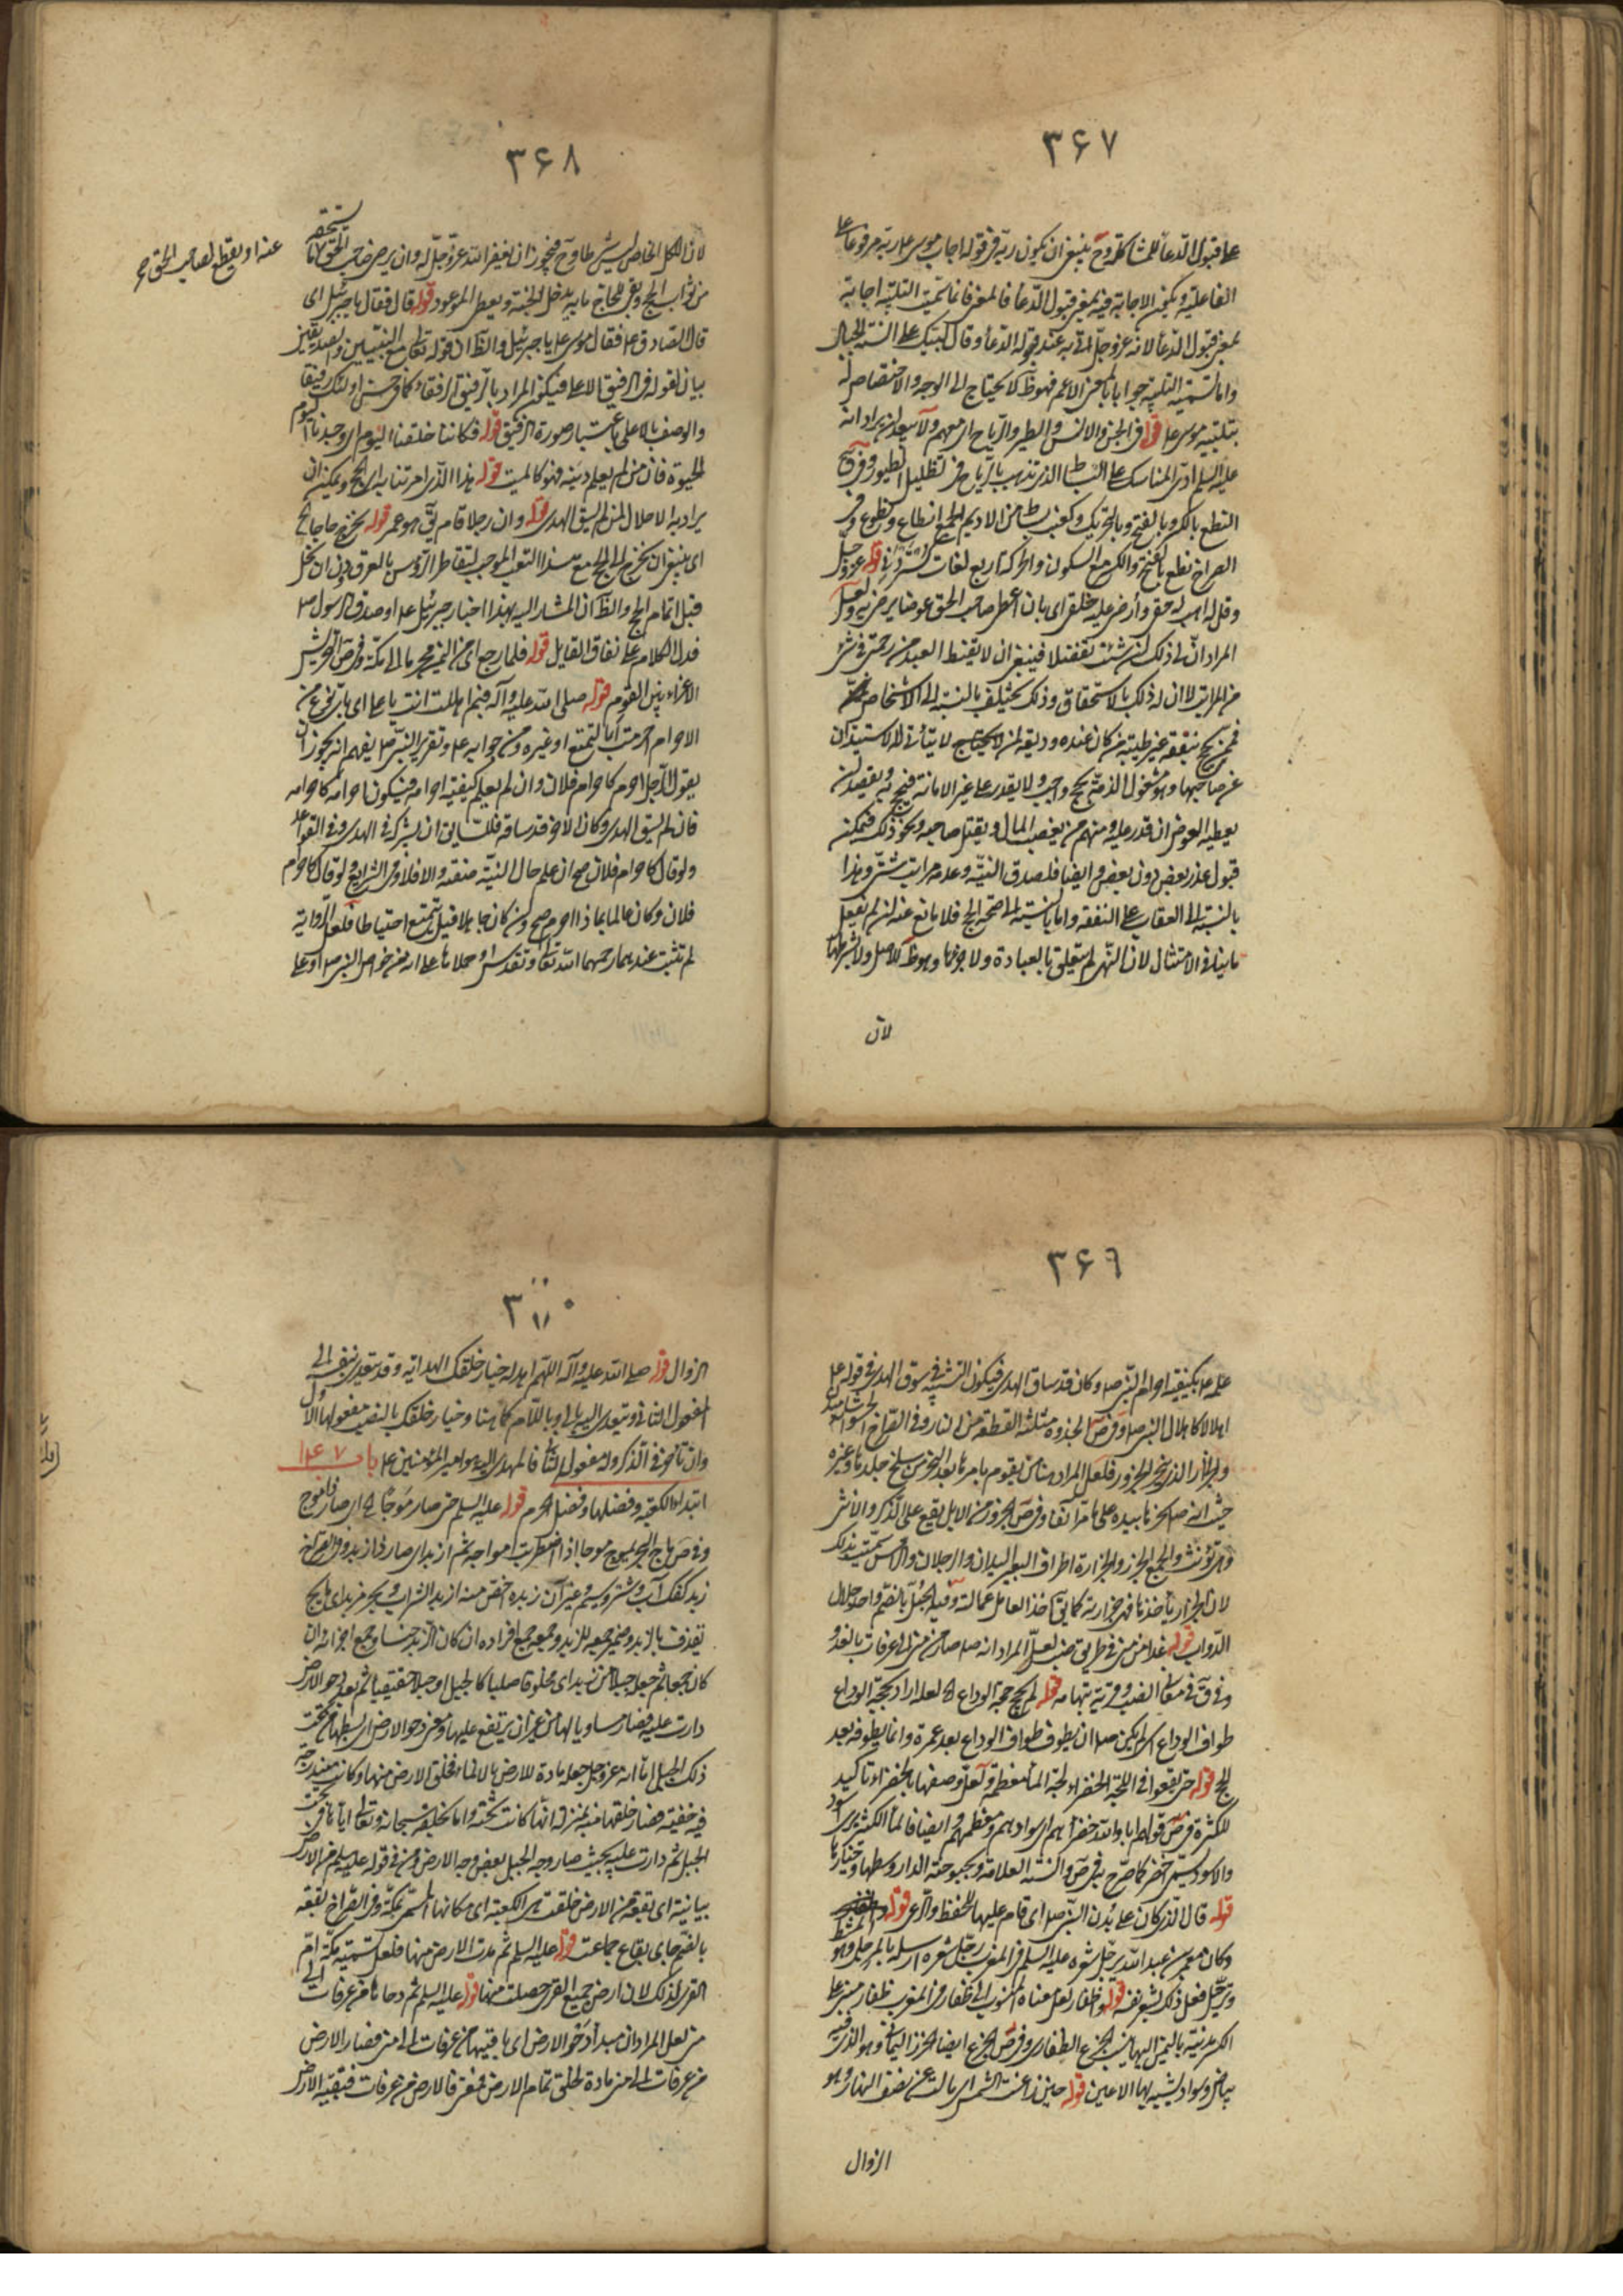 ٣۶٧
على قبول الدعاء للمشاكلة وح ينبغى ان يكون ربه فى قوله اجاب موسى على ربه مرفوعا على
الفاعلية ويكون الاجابة فيه بمعنى قبول الدعاء فالمعنى فانما سميت التلبية اجابة
بمعنى قبول الدعاء لانه عز وجل لبّى به عند قوله الدعاء وقال لبيك على السنة الجبال
واما تسمية التلبية جوابا بالمعنى الاعم فهو ظ كلا يحتاج الى الوجه والاختصاص له
بتلبية موسى ع قوله فى الجن والانس والطير والرياح اى معهم ولا يبعد ان يراد انه
عليه السلم ادى المناسك على البساط الذى تذهب به الرياح فى تظليل الطيور وفى ح
النطع بالكسر وبالفتح وبالتحريك وكعنب بساط من الاديم الجمع انطاع ونطوع وفى
الصراح نطع بالفتح والكسر مع السكون والحركة اربع لغات قوله عز وجل
وقل له اهب له حقى وأرضى عليه خلقى اى بان اعطى صاحب الحق عوضا يرضى به ولعل
المراد ان لى ذلك ان شئت تفضلا فينبغى ان لا يقنط العبد من رحمتى فى شئ
من المراتب لا ان له ذلك بالاستحقاق وذلك يختلف بالنسبة الى الاشخاص
فمن حج بنفقة غير طيبة من كان عنده وديعة لمن لا يحج لا يتأتى له الاستيذان
عن صاحبها وهو مشغول الذمة بحج واجب ولا يقدر على غير الامانة فيحج به ويقصد ان
يعطيه العوض ان قدر عليه ومنهم من يغصب المال ويقتل صاحبه ونحو ذلك فيمكن
قبول عذر بعض دون بعض وايضا فلصدق النية وعدمه مراتب شتى وهذا
بالنسبة الى العقاب على النفقة واما بالنسبة الى صحة الحج فلا مانع عنه ان لم يفعل
ما ينافى الامتثال لان النهى لم يتعلق بالعبادة ولا جزئها وهو ظ كالاصل ولا شرطها
لان
٣۶٨
لان الكل الخاص ليس بشرط وح فيجوز ان يغفر الله عز وجل له وان يرضى صاحب الحق بما يستحقه
من ثواب الحج ويبقى للحاج ما به يدخل الجنة ويعطى الموعود قوله قال فقال يا جبرئيل اى
قال الصادق ع فقال موسى ع يا جبرئيل والظ ان قوله تعالى مع النبيين والصديقين
بيان لقوله فى الرفيق الاعلى فيكون المراد بالرفيق الرفقاء كما فى وحسن اولئك رفيقا
والوصف بالاعلى باعتبار صورة الرفيق قوله فكاننا خلقنا اليوم اى وجدنا اليوم
الحيوة فان من لم يعلم دينه فهو كالميت قوله هذا الذى امرتنا به اى الحج ويمكن ان
يراد به الاحلال لمن لم يسق الهدى قوله وان رجلا قام يق هو عمر قوله نخرج حاجا الخ
اى ينبغى ان نخرج الى الحج مع هذا التعب الموجب لتقاطر الرؤس بالعرق دون ان نحل
قبل اتمام الحج والظ ان المشار اليه بهذا اخبار جبرئيل ع او صدق الرسول ص
فدل الكلام على نفاق القايل قوله فلما رجع اى من اليمن محرما الى مكة وفى ص التحريش
الاغراء بين القوم قوله صلى الله عليه وآله فبم اهللت انت يا على اى باى نوع من
الاحرام احرمت أبالتمتع او غيره ومن جوابه ع وتقرير النبى ص يفهم انه يجوز ان
يقول الرجل احرم كاحرام فلان وان لم يعلم كيفية احرامه فيكون احرامه كاحرامه
فان لم يسق الهدى وكان الاخر قد ساقه فلا يتأتى ان يشركه فى الهدى وفى القواعد
ولو قال كاحرام فلان صح ان علم حال النية صفته والا فلا وفى الشرايع ولو قال كاحرام
فلان وكان عالما بماذا احرم صح وان كان جاهلا قيل يتمتع احتياطا فلعل الرواية
لم تثبت عندهما رحمهما الله تعالى وتقدس او حملاها على انه من خواص النبى ص او على
عنه او يقطع لصاحب الحق صح
٣۶٩
علمه ع بكيفية احرام النبى ص وكان قد ساق الهدى فيكون التشبيه فى سوق الهدى فى قوله ع
اهلالا كاهلال النبى ص وفى ص الجذوة مثلثة القطعة من النار وفى الصراح
والجزار الذى ينحر الجزور فلعل المراد هنا من يقوم بامرها بعد النحر من سلخ جلدها وغيره
حيث انه ص نحرها بيده على ما مر آنفا وفى ص الجزور من الابل يقع على الذكر والانثى
وهى تؤنث والجمع الجزر والجزارة اطراف البعير اليدان والرجلان والرأس سميت بذلك
لان الجزار يأخذها فهى جزارته كما يق اخذ العامل عمالته وفيه الجل بالضم واحد جلال
الدواب قوله غدا من منى فى طريق ضب لعل المراد انه ص صار من منى الى عرفات بالغدو
وفى ق فى معانى الضب وقرية بتهامة قوله لم يحج حجة الوداع اه لعله اراد بحجة الوداع
طواف الوداع اى لم يكن ص ان يطوف طواف الوداع بعد عمرة وانما يطوفه بعد
الحج قوله حتى يقعوا فى اللجة الخضراء لجة الماء معظمه ولعل وصفها بالخضراء تاكيد
للكثرة فى ص قولهم اباد الله خضراءهم اى سوادهم ومعظمهم وايضا فالماء الكثير يرى اسود
والاسود يسمى اخضر كما صرح به فى ص والسنة العلامة وبحبوحة الدار وسطها وخيارها
قوله قال الذى كان على بدن النبى ص اى قام عليها للحفظ والرعى قوله
وكان معمر بن عبد الله يرجل شعره عليه السلم فى المغرب رجل شعره ارسله بالمرجل وهو المشط
وترجل فعل ذلك بشعر نفسه قوله وظفار لعل معناه المنسوب الى ظفار وفى المغرب ظفار مبنى على
الكسر مدينة باليمن اليها ينسب الجزع الظفارى وفى ص الجزع ايضا الخرز اليمانى وهو الذى فيه
بياض وسواد يشبه بها الاعين قوله حين زاغت الشمس اى مالت عن نصف النهار وهو
الزوال
٣٧٠
الزوال قوله صلى الله عليه وآله اللهم اهد له خيار خلقك الهداية وقد يتعدى بنفسه الى
المفعول الثانى ويتعدى اليه بالى او باللام كما هنا وخيار خلقك بالنصب مفعولها الاول
وان تأخر فى الذكر وله مفعول الثانى فالمهدى اليه هو امير المؤمنين ع باب ١٤٧
ابتداء الكعبة وفضلها وفضل الحرم قوله عليه السلم حتى صار موجا اه اى صار ذا موج
وفى ص ماج البحر يموج موجا اذا اضطربت امواجه ثم ازبد اى صار ذا زبد وفى الصراح
زبد كفك آب وشتر وسيم وغير آن زبدة اخص منه ازبد الشراب وبحر مزبد اى مايج
يقذف بالزبد وضمير جمعه للزبد وجمعه جمع افراده ان كان الزبد جنسا وجمع اجزائه ان
كان جمعا ثم جعله جبلا من زبد اى مخلوقا صلبا كالجبل او جبلا حقيقيا ثم بعد دحو الارض
دارت عليه فصار مساويا لها من غير ان يرتفع عليها ومعنى دحو الارض اى بسطها من تحت
ذلك الجبل اما انه عز وجل جعله مادة للارض بالانماء فخلق الارض منها وكانت مندرجة
فيه خفية فصار خلقها منه بمنزلة انها كانت تحته واما تخليقه سبحانه وتعالى اياها من تحت
الجبل ثم دارت عليه بحيث صار وجه الجبل بعض وجه الارض ومن فى قوله عليه السلم من الارض
بيانية اى بقعة من الارض خلقت هى الكعبة اى مكانها المسمى ببكة وفى الصراح بقعه
بالضم جاى بقاع جماعت قوله عليه السلم ثم مدت الارض منها فلعل تسميته مكة ام
القرى لذلك لان ارض جميع القرى حصلت منها قوله عليه السلم ثم دحاها من عرفات الى
منى لعل المراد ان مبدأ دحو الارض اى باقيتها من عرفات الى منى فصار الارض
من عرفات الى منى مادة لخلق تمام الارض فمعنى فالارض من عرفات فبقية الارض